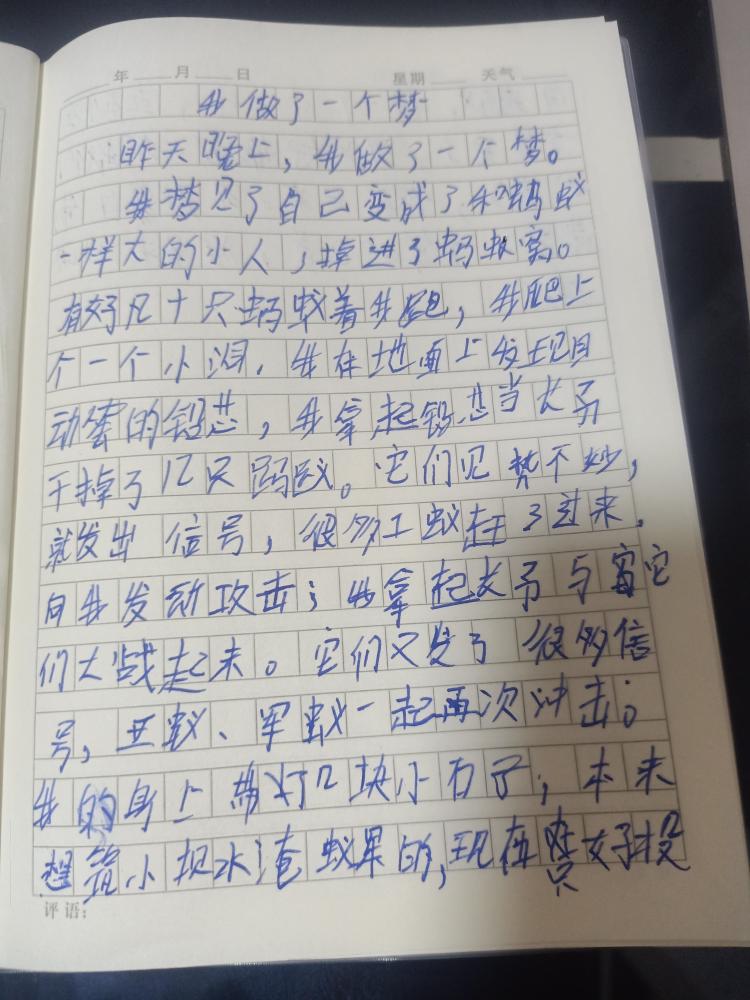 年 月 日 星期 天气
我做了一个梦
昨天晚上，我做了一个梦。
我梦见了自己变成了和蚂蚁
一样大的小人，掉进了蚂蚁窝。
有好几十只蚂蚁着我跑，我爬上
个一个小洞，我在地面上发现自
动的铅芯，我拿起铅芯当长矛
干掉了几只蚂蚁。它们见势不妙，
就发出信号，很多工蚁赶了过来，
向我发动攻击；我拿起长矛与它
们大战起来。它们又发了很多信
号，工蚁、军蚁一起再次冲击。
我的身上带好几块小石子，本来
想筑小坝水淹蚁巢的，现在只好投
评语：